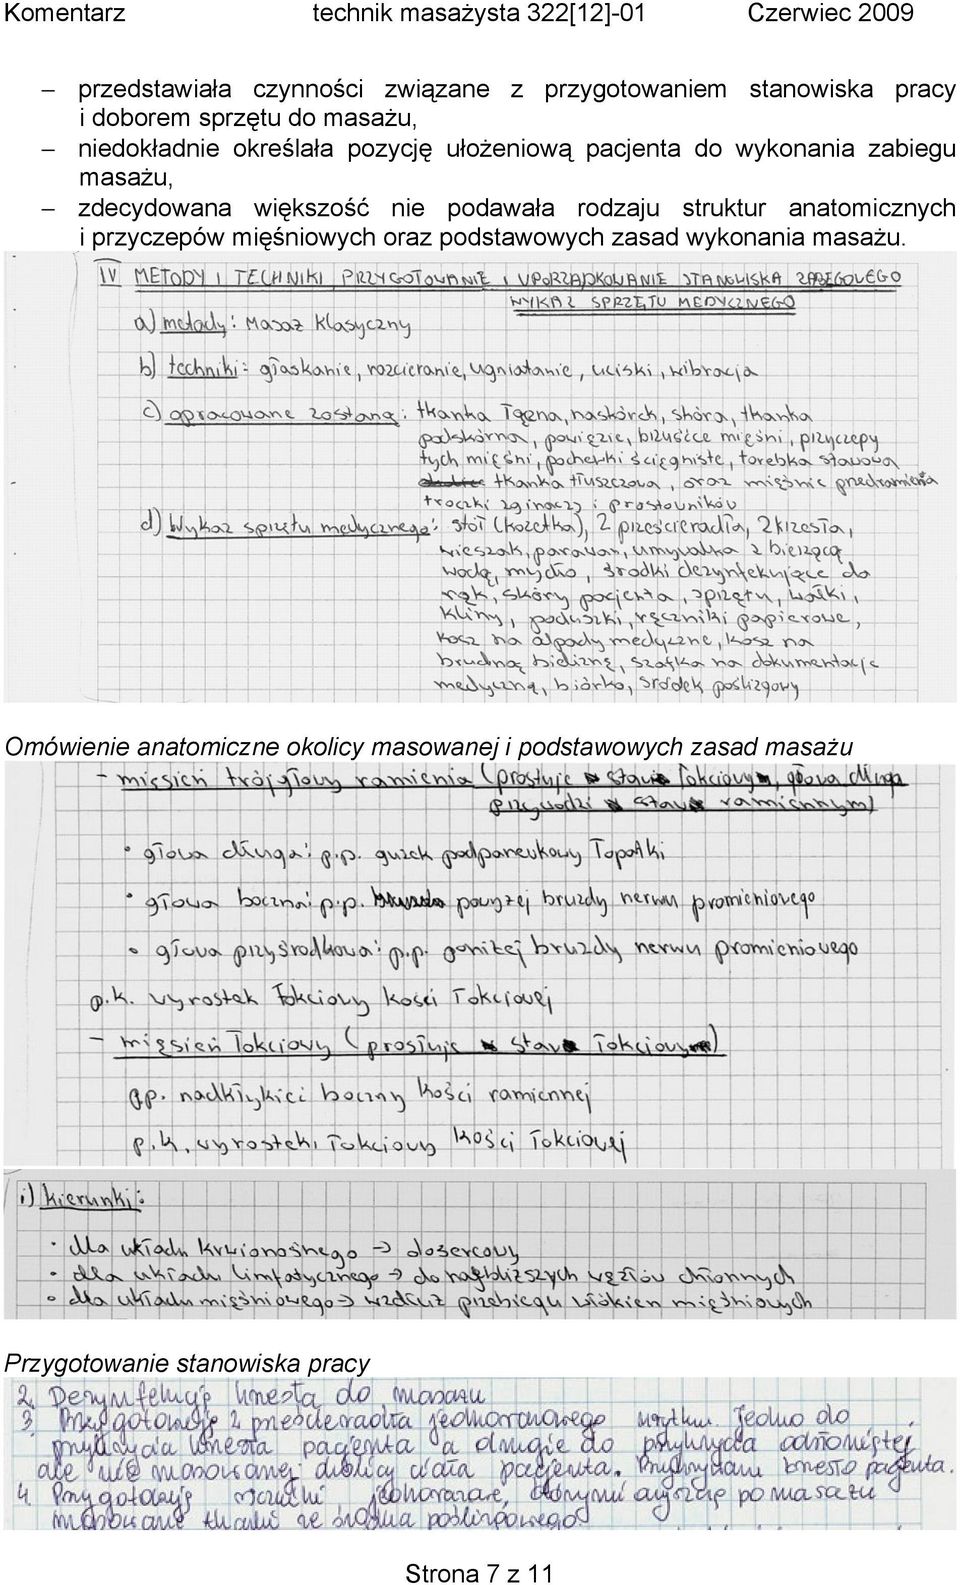 Komentarz technik masażysta 322[12]-01 Czerwiec 2009
− przedstawiała czynności związane z przygotowaniem stanowiska pracy
i doborem sprzętu do masażu,
− niedokładnie określała pozycję ułożeniową pacjenta do wykonania zabiegu
masażu,
− zdecydowana większość nie podawała rodzaju struktur anatomicznych
i przyczepów mięśniowych oraz podstawowych zasad wykonania masażu.
IV METODY I TECHNIKI PRZYGOTOWANIE I UPORZĄDKOWANIE STANOWISKA ZABIEGOWEGO
WYKAZ SPRZĘTU MEDYCZNEGO
a) metody: Masaż klasyczny
b) techniki: głaskanie, rozcieranie, ugniatanie, uciski, wibracja
c) opracowane zostaną: tkanka łączna, naskórek, skóra, tkanka
podskórna, powięzie, brzuśce mięśni, przyczepy
tych mięśni, pochewki ścięgniste, torebka stawowa
tkanka tłuszczowa, oraz mięśnie przedramienia
troczki zginaczy i prostowników
d) Wykaz sprzętu medycznego: stół (kozetka), 2 prześcieradła, 2 krzesła,
wieszak, parawan, umywalka z bieżącą
wodą, mydło, środki dezynfekujące do
rąk, skóry pacjenta, sprzętu, wałki,
kliny, poduszki, ręczniki papierowe,
kosz na odpady medyczne, kosz na
brudną bieliznę, szafka na dokumentację
medyczną, biórko, środek poślizgowy
Omówienie anatomiczne okolicy masowanej i podstawowych zasad masażu
- mięsień trójgłowy ramienia (prostuje staw łokciowy, głowa długa
przywodzi staw ramienny)
• głowa długa: p.p. guzek podpanewkowy łopatki
• głowa boczna: p.p. powyżej bruzdy nerwu promieniowego
• głowa przyśrodkowa: p.p. poniżej bruzdy nerwu promieniowego
p.k. wyrostek łokciowy kości łokciowej
- mięsień łokciowy (prostuje staw łokciowy)
p.p. nadkłykieć boczny kości ramiennej
p.k. wyrostek łokciowy kości łokciowej
i) kierunki:
• dla układu krwionośnego → dosercowy
• dla układu limfatycznego → do najbliższych węzłów chłonnych
• dla układu mięśniowego → wzdłuż przebiegu włókien mięśniowych
Przygotowanie stanowiska pracy
2. Dezynfekuję krzesła do masażu
3. Przygotowuję 2 prześcieradła jednorazowego użytku. Jedno do
przykrycia krzesła pacjenta a drugie do przykrycia odsłoniętej
ale nie masowanej okolicy ciała pacjenta. Przykrywam krzesło pacjenta.
4. Przygotowuję ręczniki jednorazowe, którymi oczyszczę po masażu
masowane tkanki ze środka poślizgowego.
Strona 7 z 11